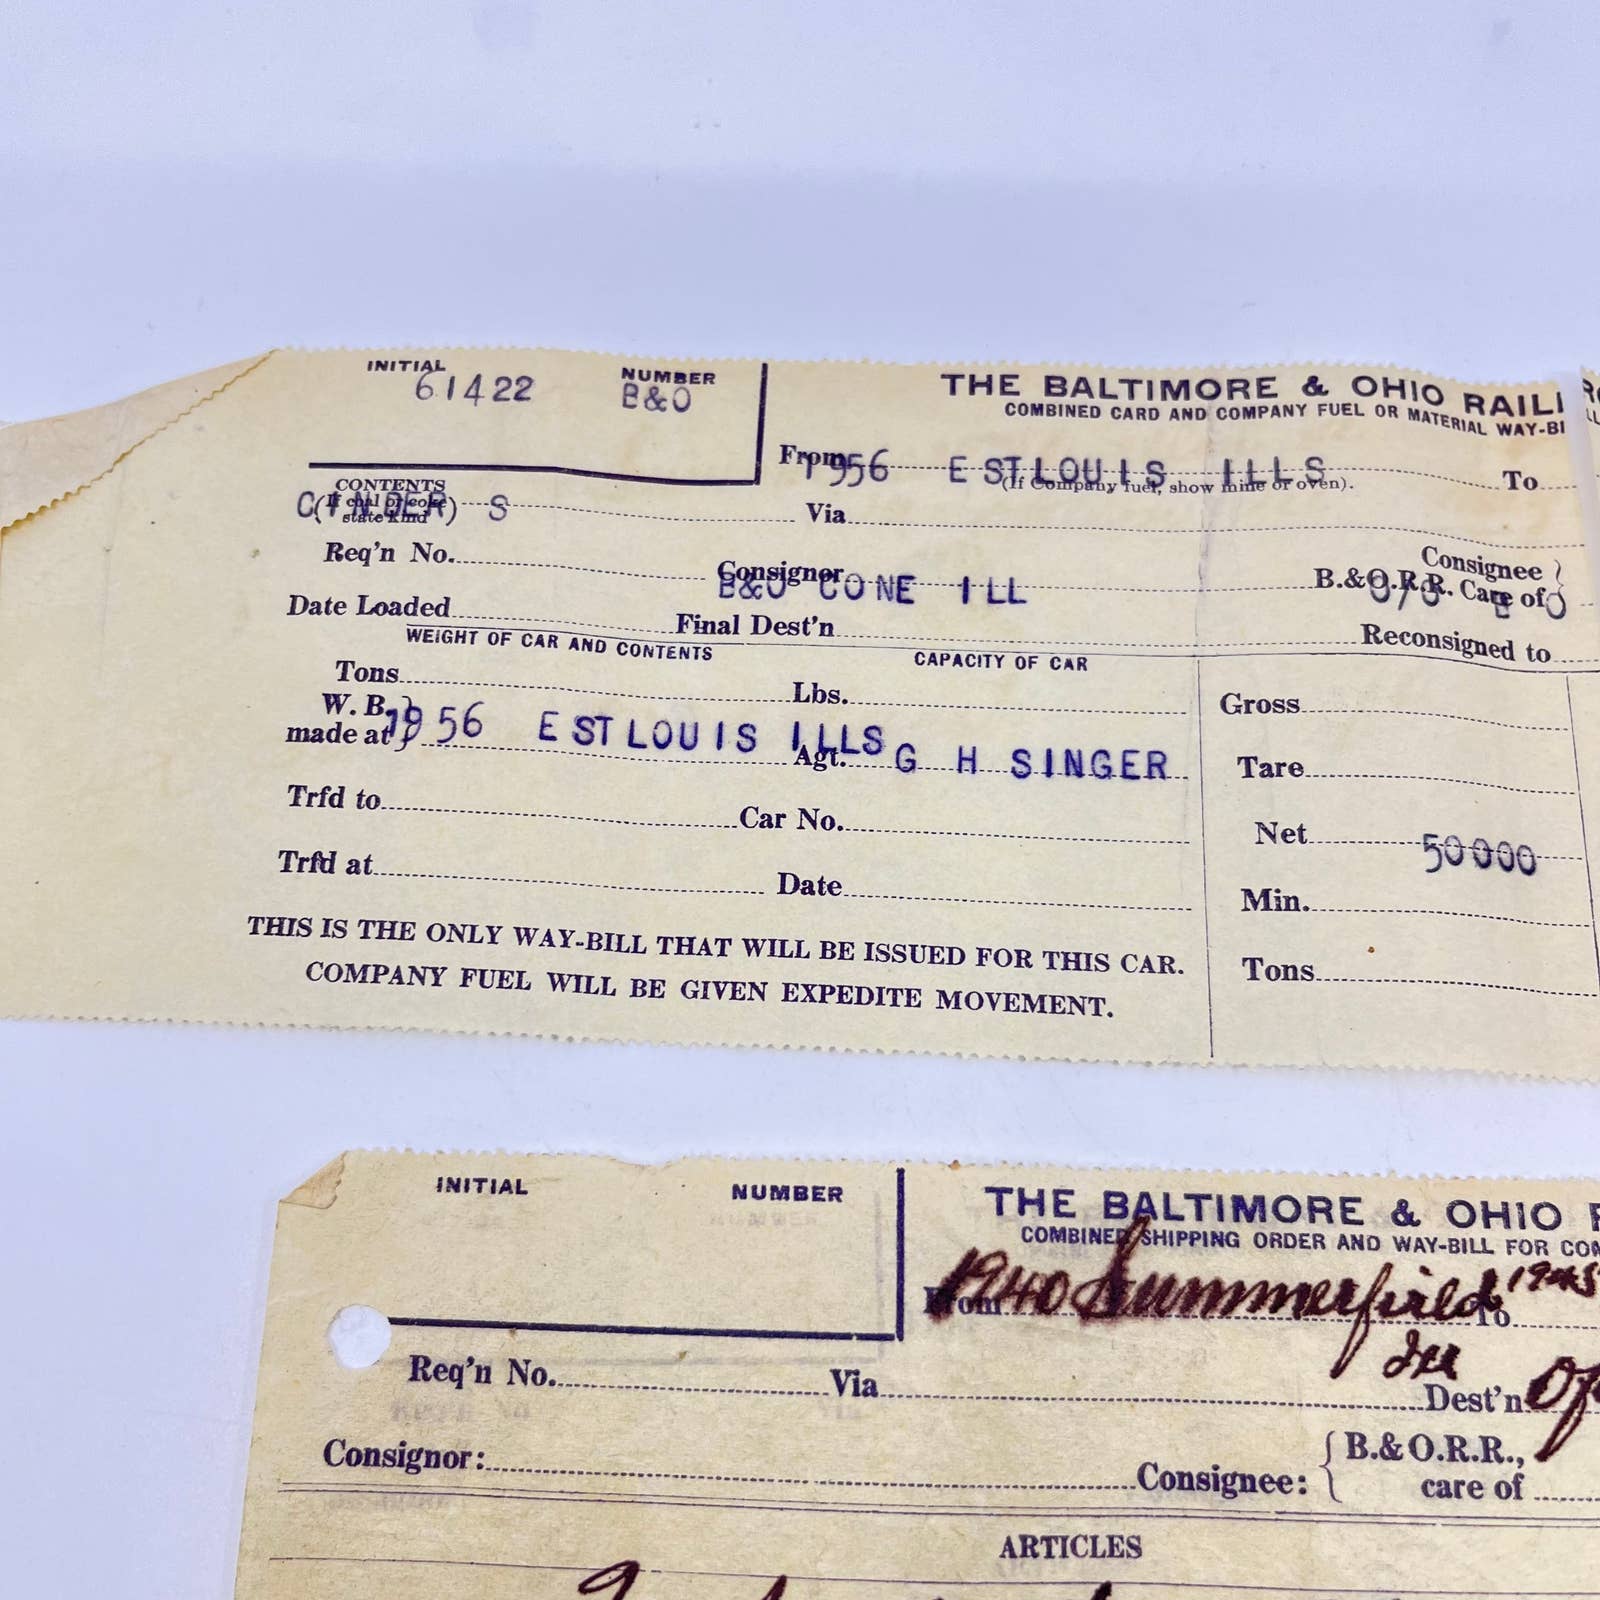 INITIAL NUMBER
61422 B&O
THE BALTIMORE & OHIO RAIL
COMBINED CARD AND COMPANY FUEL OR MATERIAL WAY-BI
From 1956 E ST LOUIS ILLS To
(If Company fuel, show mine or oven).
CONTENTS
(If coal or coke) CINDER S Via
state kind
Req'n No. Consignor B&O CONE ILL Consignee
B.&O.R.R. Care of
Date Loaded Final Dest'n Reconsigned to
WEIGHT OF CAR AND CONTENTS CAPACITY OF CAR
Tons Lbs. Gross
W. B.
made at 1956 E ST LOUIS ILLS Agt. G H SINGER Tare
Trfd to Car No. Net 50000
Trfd at Date Min.
THIS IS THE ONLY WAY-BILL THAT WILL BE ISSUED FOR THIS CAR. Tons
COMPANY FUEL WILL BE GIVEN EXPEDITE MOVEMENT.
INITIAL NUMBER
THE BALTIMORE & OHIO
COMBINED SHIPPING ORDER AND WAY-BILL FOR COM
From 1940 Summerfield To
Req'n No. Via Dest'n
Consignor: Consignee: B.&O.R.R.,
care of
ARTICLES